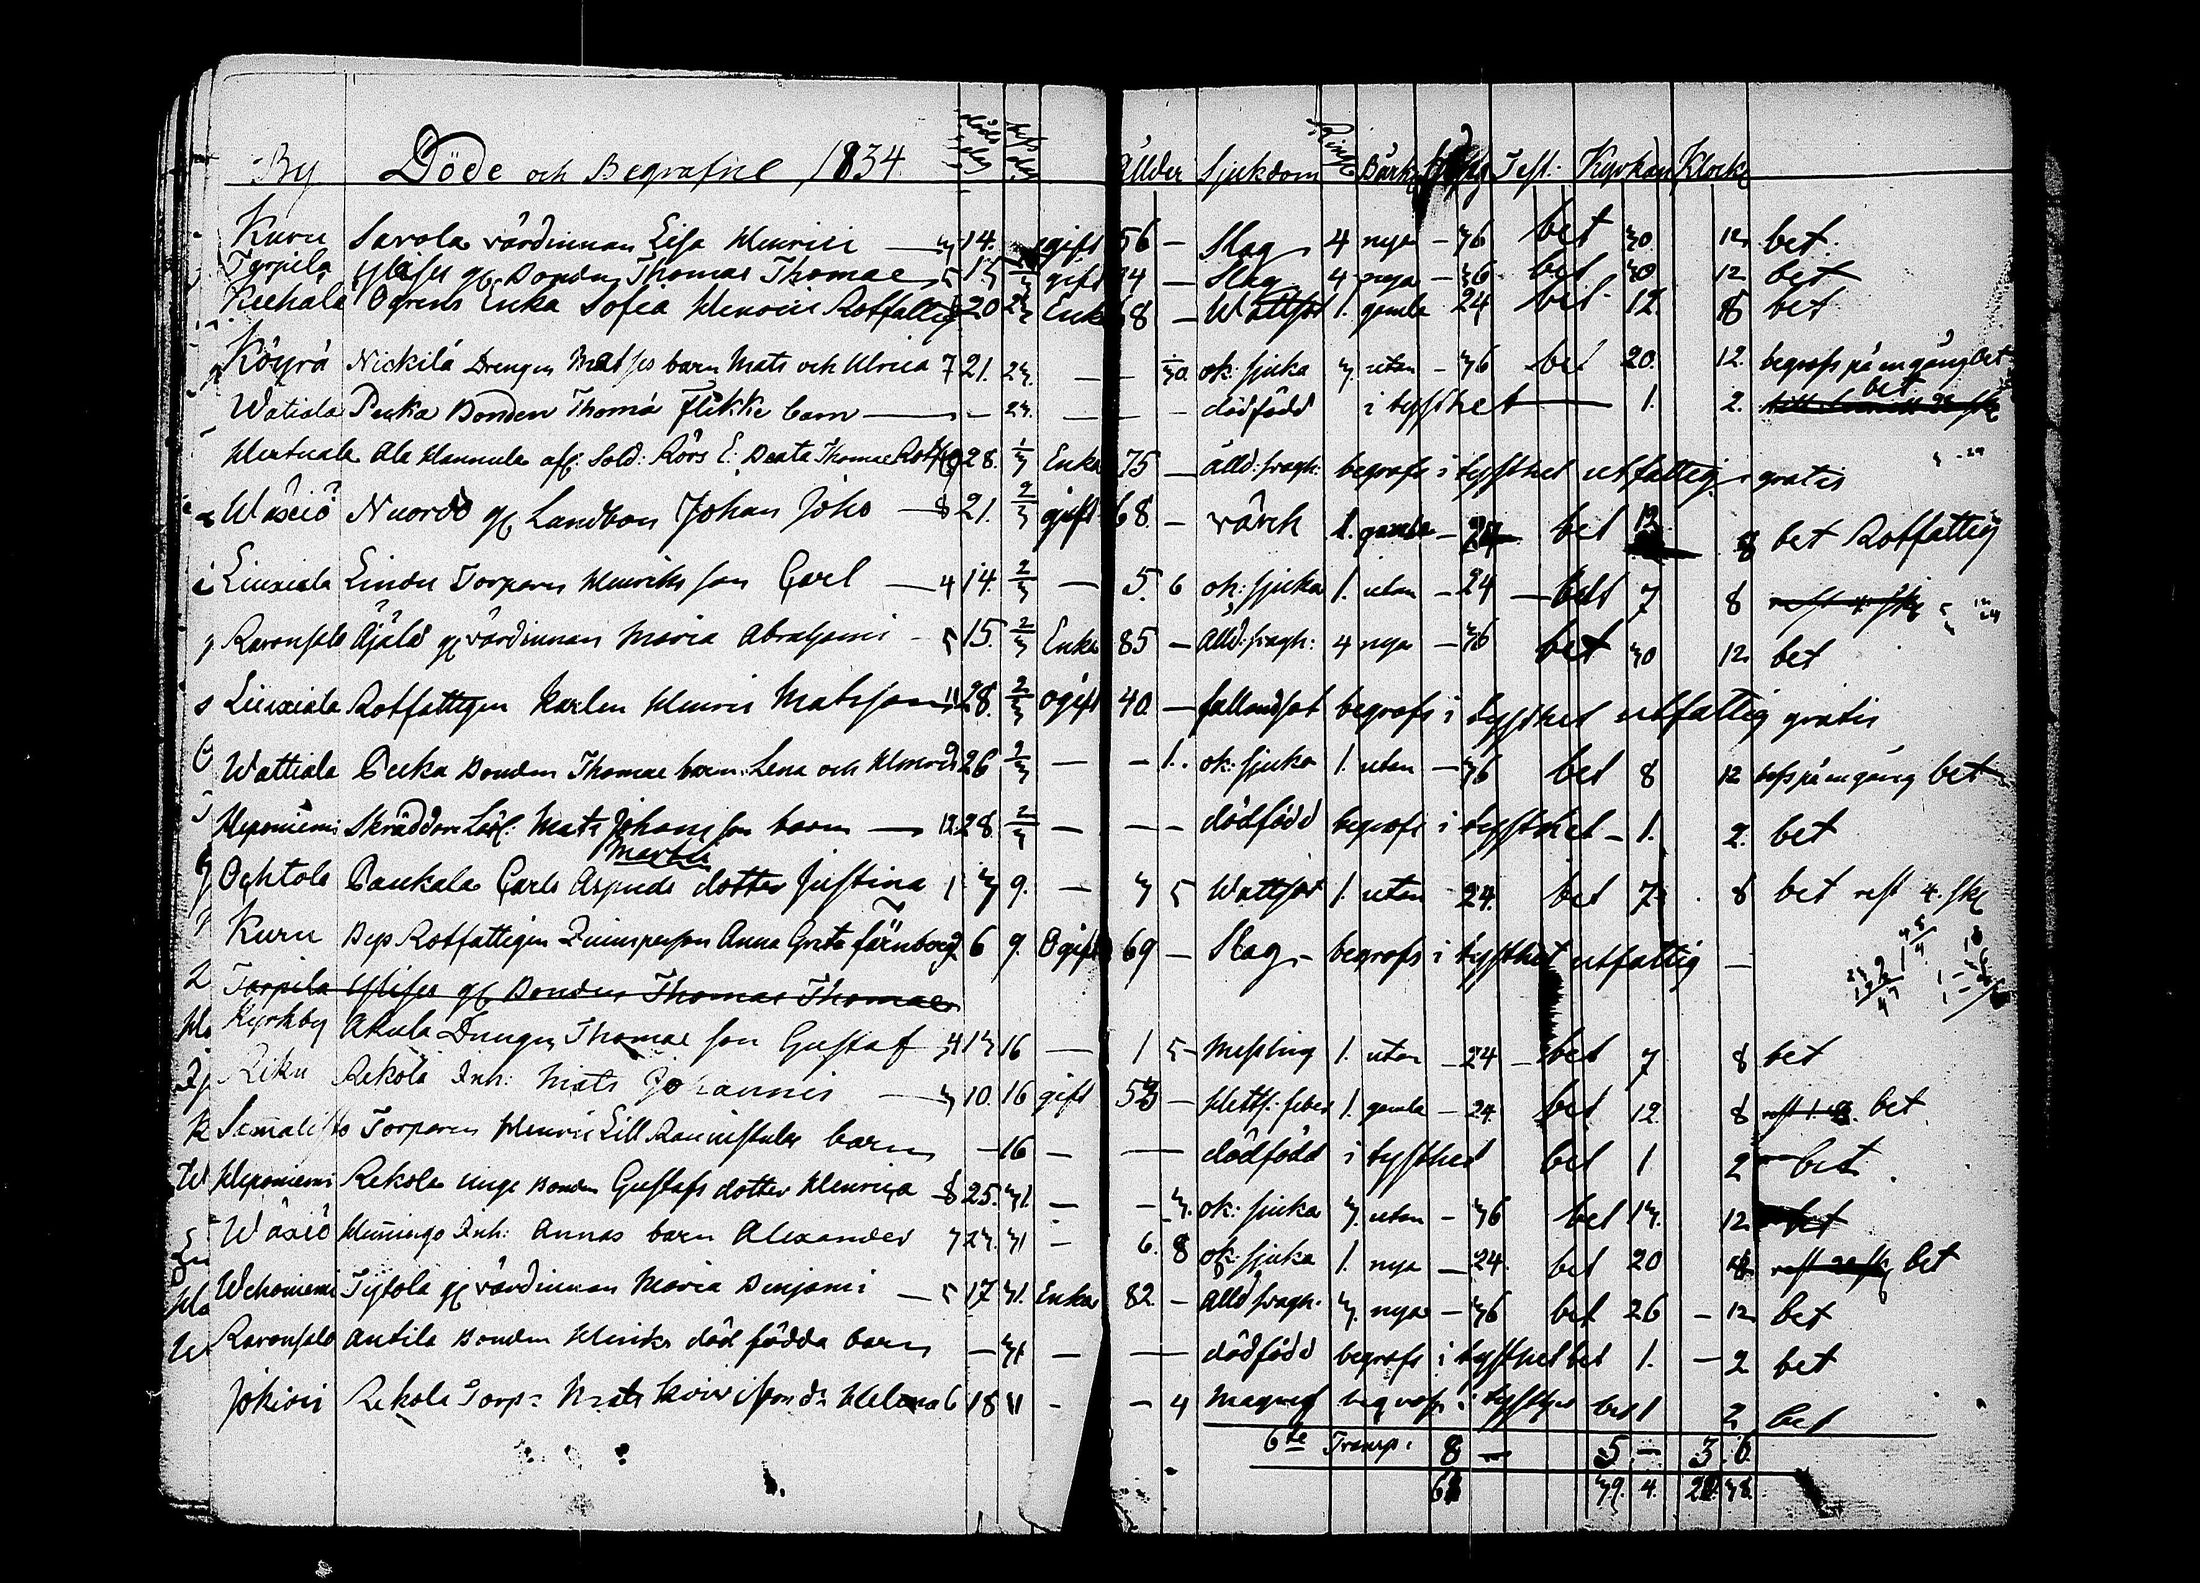 By Döde och Begrafne 1834. döds dag begr. dag Ållder Sjukdom Ringn. Bårk. Test. Kyrkan Klock.
Kuru Savola värdinnan Lisa Henrici — 3 14. ogift 56 — Slag 4 nya — 36 bet 30. 12 bet.
Tarpila gl. Bonden Thomas Thomae 5 15 gift 74 — Slag 4 nya — 36 bet 30 12 bet
Keehala Ögrens Enka Sofia Henrici Rotfattig 20 23 Enka 68 — Wattsot 1. gamla 24 bet 12. 8 bet
Köyrä Nickilä Drengen Matses barn Mats och Ulrica 7 21. 23. — — 30. ok: sjuka 3. utan — 36 bet 20. 12. begrofs på en gång bet
Watiala Pecka Bonden Thoma flikke barn — — 23. — — — dödfödd i tysthet — 1. 2. bet
Hertuala Ala Hannula afl. Sold: Rörs E: Beata Thomae Rotf. 28. Enka 75 — ålld: bragh: begrofs i tysthet utfattig gratis
Wäxiö Nuordo gl Landbon Johan Johs — 8 21. 2/3 gift 68. — värck 1. gamla — 24 bet 12 8 bet Rotfattig
Liuxiala Lindu Torparen Henriks son Carl — 4 14. 2/3 — 5. 6 ok: sjuka 1. utan — 24 — bet 7 8 rest 4. sk
Ravonsalo Äjälä gl värdinnan Maria Abrahami — 5 15. 2/3 Enka 85 — Ålld: bragh: 4 nya — 36 bet 30 12 bet
Liuxiala Rotfattigen Karlen Henric Matsson 11 28. 2/3 Ogift 40. — fallandsot begrofs i tysthet utfattig gratis
Wattiala Pecka Bonden Thomae barn Lena och Henric 9 26 2/3 — — 1. ok: sjuka 1. utan — 36 bet 8 12 begrofs på en gång bet
Heponiemi Skräddare Lärl: Mats Johansson barn — 12 28. 2/3 — — — dödfödd begrofs i tysthet — 1. 2. bet
Martu
Ochtola Paukala Carls Aspuds dotter Justina 1 3 9. — 3 5 Wattsot 1. utan — 24. bet 7. 8 bet rest 4. sk
Kuru Bys Rotfattigen Qvinsperson Anna Greta färnberg 2 6 9. Ogift 69 — Slag — begrofs i tysthet utfattig —
Tarpila gl Bonden Thomas Thomae
Kyrkby Akula Drengen Thomae son Gustaf 4 13 16 — 1 5 Messling 1. utan — 24 — bet 7 8 bet
Riku Rekola Inh: Mats Johannis — 3 10. 16 gift 53 — Hetts: feber 1. gamla — 24. bet 12. 8 bet
Torparen Henric Lill Rannistules barn — 16 — — dödfödd i tysthet bet 1 2 bet
Heponiemi Rekola unge Bonden Gustafs dotter Henrica 8 25. 31 — — 3. ok: sjuka 3. utan — 36 bet 13. 12. bet
Wäxiö Hemingo Inh: Annas barn Alexander 7 23. 31 — 6. 8 ok: sjuka 1. nya — 24. bet 20 8 bet
Wehoniemi Tistola gl värdinnan Maria Benjami — 5 17 31. Enka 82 — Ålld bragh. 3. nya — 36 bet 26 — 12 bet
Ravonsalo Antila Bonden Henriks död födda barn — 31 — — dödfödd begrofs i tysthet bet 1. — 2 bet
Jokioi Rekola Torp: Mats dr Helena 6 18 11 — — 4 Magref begrofs i tysthet bet 1 2 bet
6te Transp: 8 — 5 — 3. 6.
39. 4. 38.